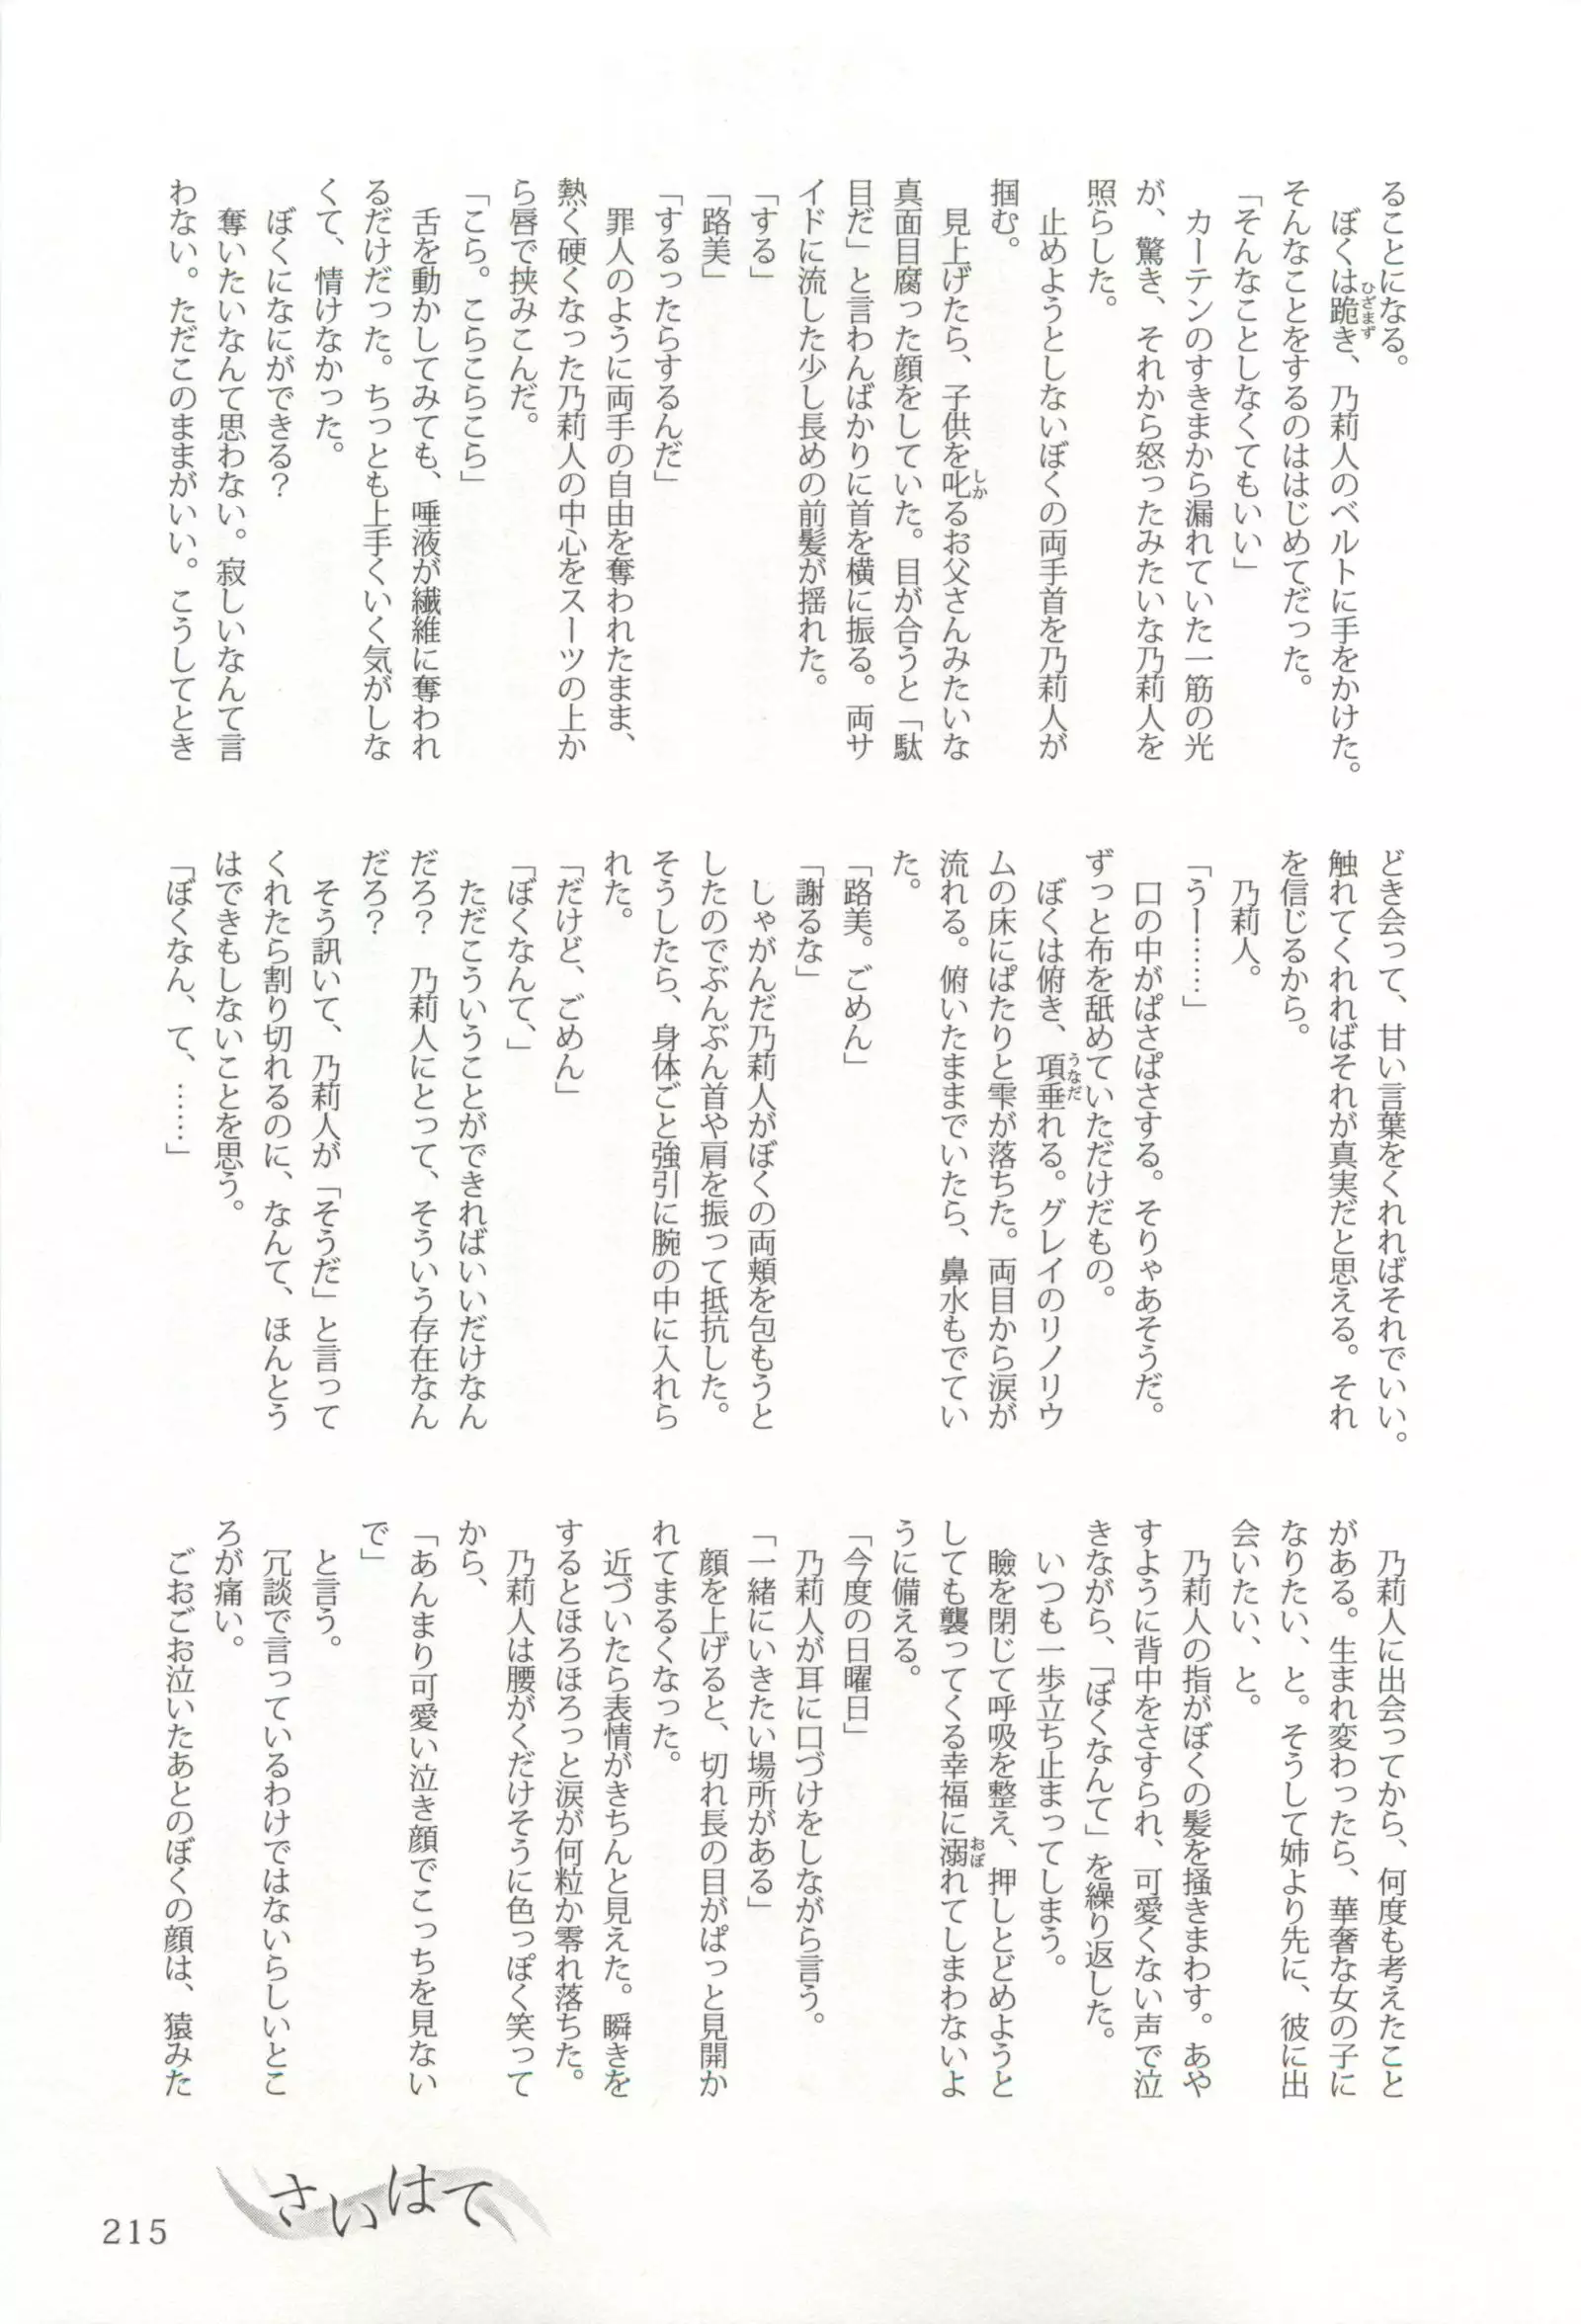 ることになる。
　ぼくは跪き、乃莉人のベルトに手をかけた。
そんなことをするのははじめてだった。
「そんなことしなくてもいい」
　カーテンのすきまから漏れていた一筋の光
が、驚き、それから怒ったみたいな乃莉人を
照らした。
　止めようとしないぼくの両手首を乃莉人が
掴む。
　見上げたら、子供を叱るお父さんみたいな
真面目腐った顔をしていた。目が合うと「駄
目だ」と言わんばかりに首を横に振る。両サ
イドに流した少し長めの前髪が揺れた。
「する」
「路美」
「するったらするんだ」
　罪人のように両手の自由を奪われたまま、
熱く硬くなった乃莉人の中心をスーツの上か
ら唇で挟みこんだ。
「こら。こらこらこら」
　舌を動かしてみても、唾液が繊維に奪われ
るだけだった。ちっとも上手くいく気がしな
くて、情けなかった。
　ぼくになにができる？
　奪いたいなんて思わない。寂しいなんて言
わない。ただこのままがいい。こうしてとき
どき会って、甘い言葉をくれればそれでいい。
触れてくれればそれが真実だと思える。それ
を信じるから。
　乃莉人。
「うー……」
　口の中がぱさぱさする。そりゃあそうだ。
ずっと布を舐めていただけだもの。
　ぼくは俯き、項垂れる。グレイのリノリウ
ムの床にぱたりと雫が落ちた。両目から涙が
流れる。俯いたままでいたら、鼻水もでてい
た。
「路美。ごめん」
「謝るな」
　しゃがんだ乃莉人がぼくの両頬を包もうと
したのでぶんぶん首や肩を振って抵抗した。
そうしたら、身体ごと強引に腕の中に入れら
れた。
「だけど、ごめん」
「ぼくなんて、」
　ただこういうことができればいいだけなん
だろ？　乃莉人にとって、そういう存在なん
だろ？
　そう訊いて、乃莉人が「そうだ」と言って
くれたら割り切れるのに、なんて、ほんとう
はできもしないことを思う。
「ぼくなん、て、……」
　乃莉人に出会ってから、何度も考えたこと
がある。生まれ変わったら、華奢な女の子に
なりたい、と。そうして姉より先に、彼に出
会いたい、と。
　乃莉人の指がぼくの髪を掻きまわす。あや
すように背中をさすられ、可愛くない声で泣
きながら、「ぼくなんて」を繰り返した。
　いつも一歩立ち止まってしまう。
　瞼を閉じて呼吸を整え、押しとどめようと
しても襲ってくる幸福に溺れてしまわないよ
うに備える。
「今度の日曜日」
　乃莉人が耳に口づけをしながら言う。
「一緒にいきたい場所がある」
　顔を上げると、切れ長の目がぱっと見開か
れてまるくなった。
　近づいたら表情がきちんと見えた。瞬きを
するとほろほろっと涙が何粒か零れ落ちた。
　乃莉人は腰がくだけそうに色っぽく笑って
から、
「あんまり可愛い泣き顔でこっちを見ない
で」
　と言う。
　冗談で言っているわけではないらしいとこ
ろが痛い。
　ごおごお泣いたあとのぼくの顔は、猿みた
さいはて
215